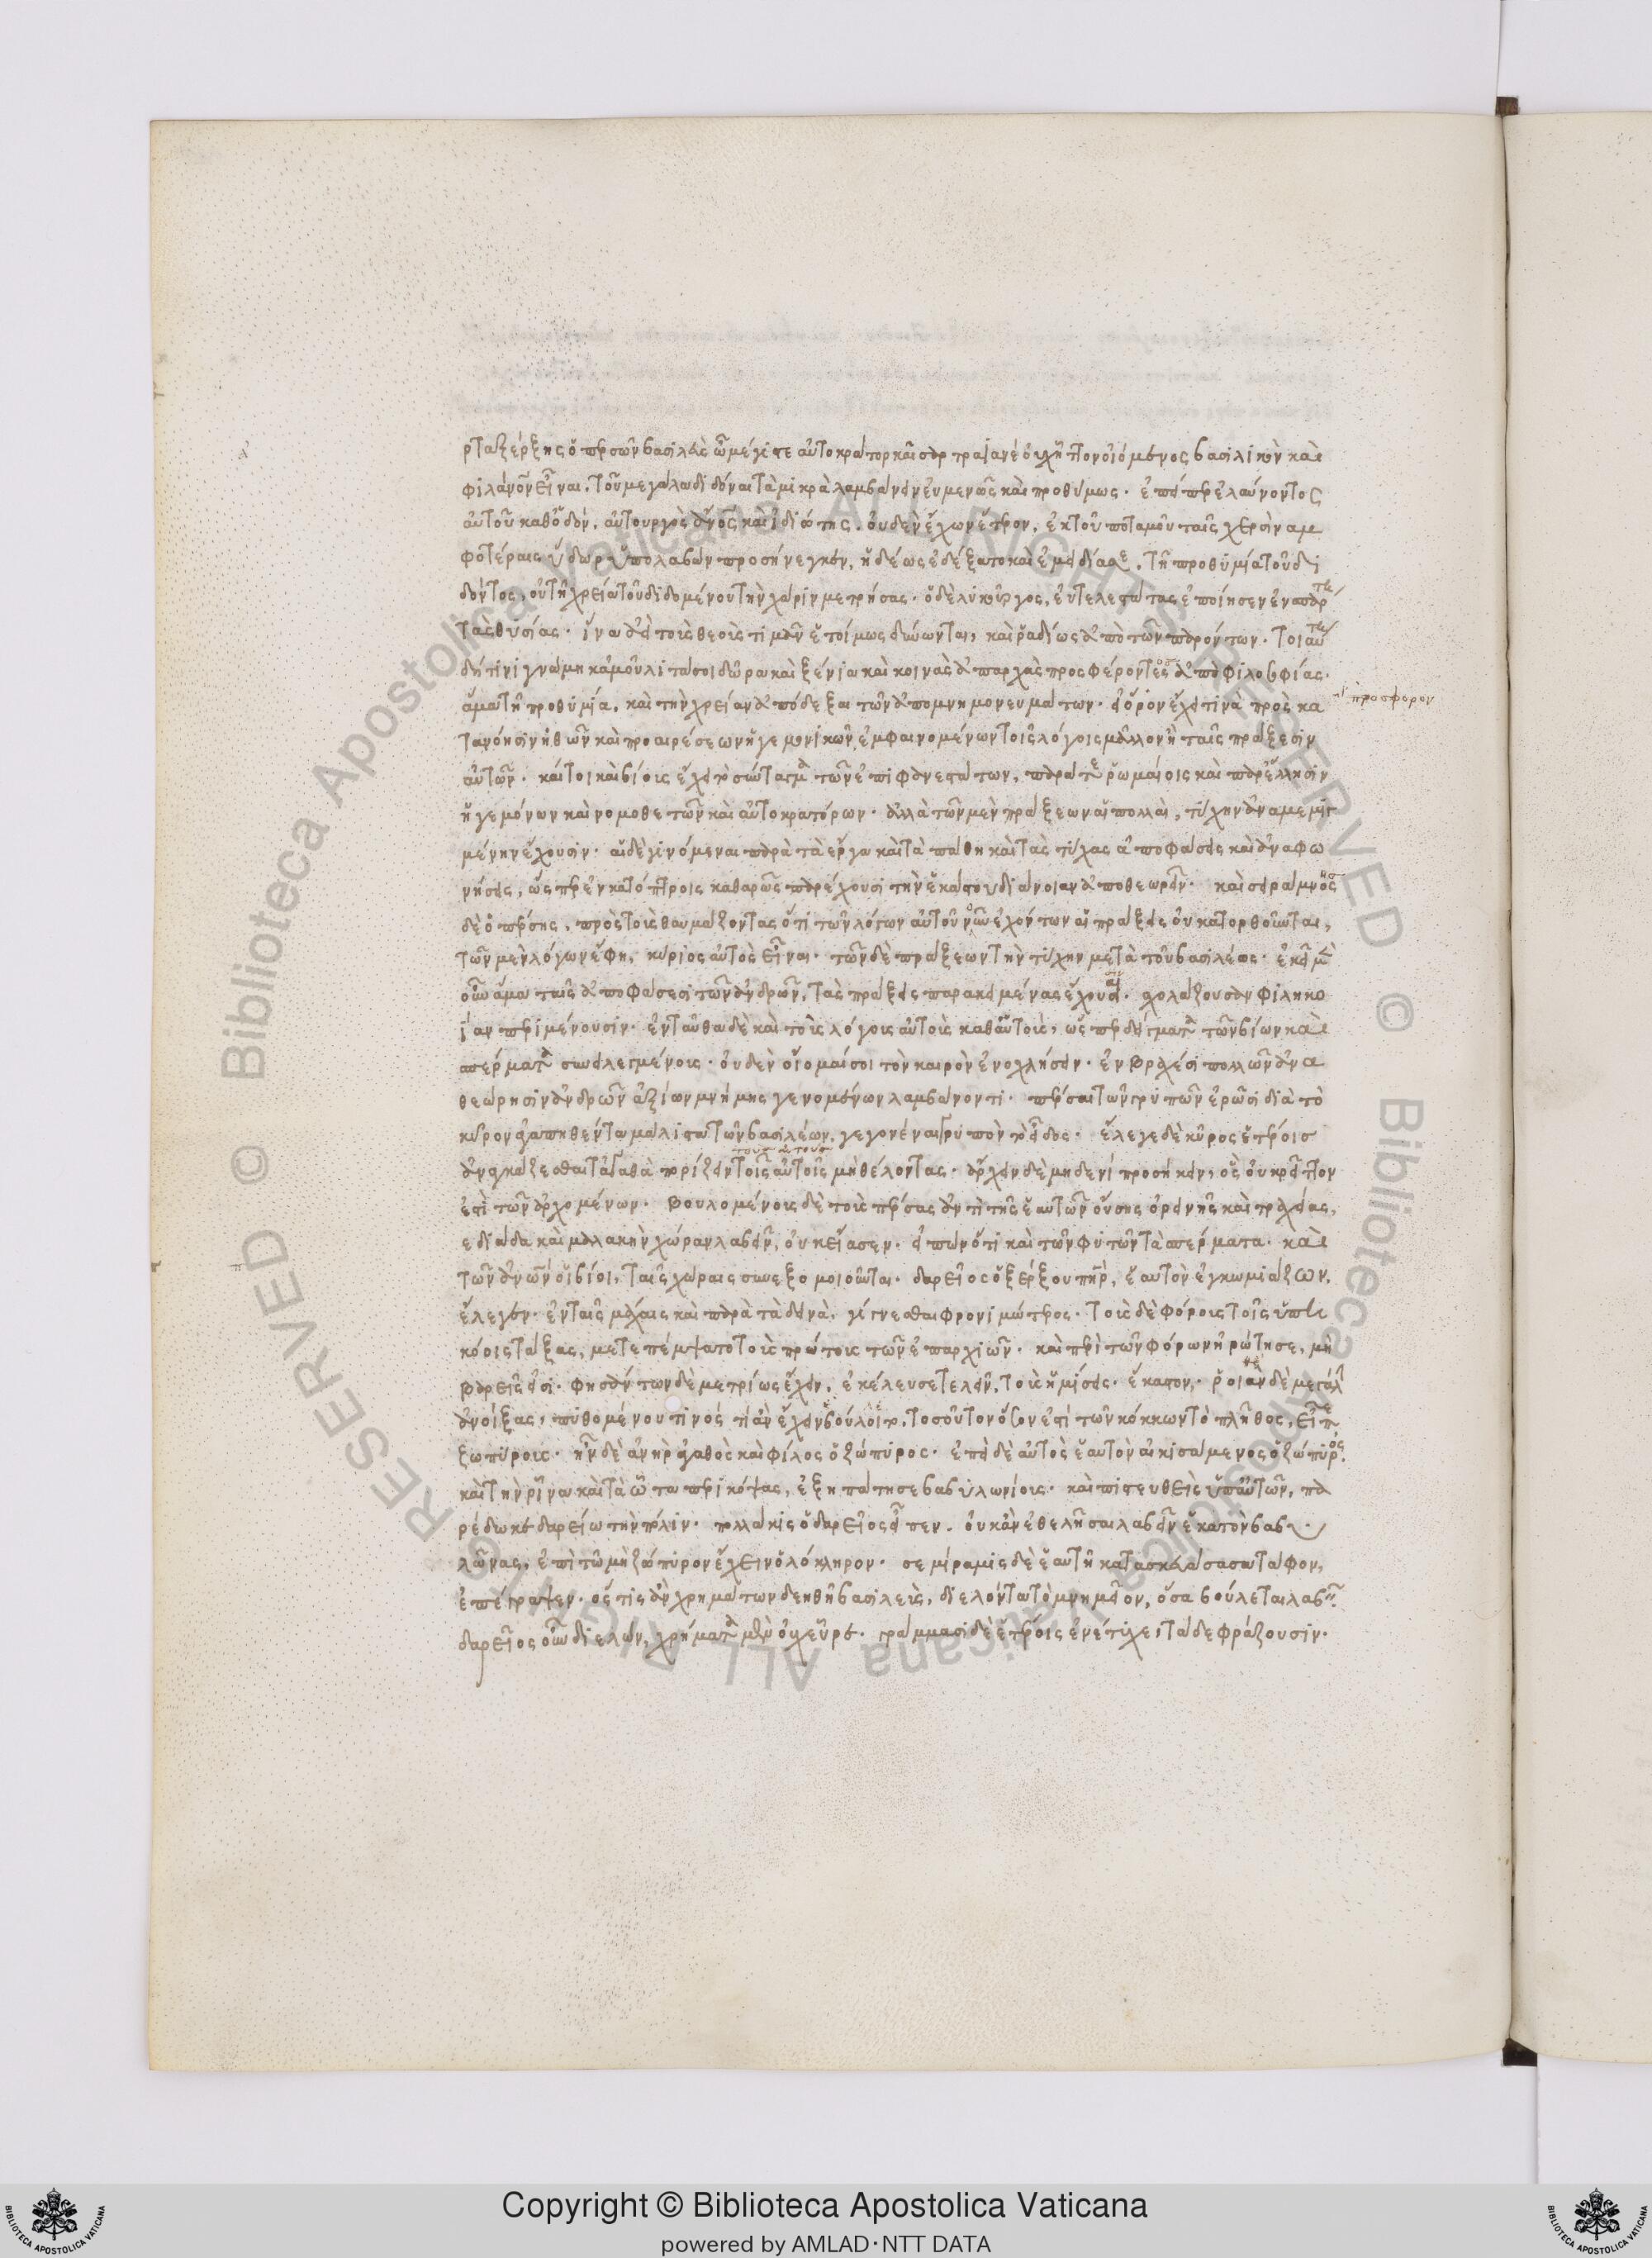 ρταξέρξης ὁ περσῶν βασιλεὺς ὦ μέγιστε αὐτοκράτορ καῖσαρ τραϊανέ οὐχ ἧττον οἰόμενος βασιλικὸν καὶ
φιλάνον εἶναι, τοῦ μεγάλα διδόναι τὰ μικρὰ λαμβάνειν εὐμενῶς καὶ προθύμως. ἐπεὶ παρελαύνοντος
αὐτοῦ καθ' ὁδὸν, αὐτουργὸς ἄνος καὶ ἰδιώτης, οὐδὲν ἔχων ἕτερον, ἐκ τοῦ ποταμοῦ ταῖς χερσὶν ἀμ
φοτέραις ὕδωρ ὑπολαβὼν προσήνεγκεν, ἡδέως ἐδέξατο καὶ ἐμειδίασε. τῇ προθυμία τοῦ δι
δόντος, οὐ τῇ χρεία τοῦ διδομένου τὴν χάριν μετρήσας. ὁ δὲ λυκοῦργος, εὐτελεστάτας ἐποίησεν ἐν σπάρτη
τὰς θυσίας. ἵνα ἀεὶ τοὺς θεοὺς τιμᾶν ἑτοίμως δύνωνται, καὶ ῥαδίως ἀπὸ τῶν παρόντων. τοιαύτη
δή τινι γνώμη κἀμοῦ λιτά σοι δῶρα καὶ ξένια καὶ κοινὰς ἀπαρχὰς προσφέροντος ἀπὸ φιλοσοφίας.
ἅμα τῇ προθυμία, καὶ τὴν χρείαν ἀπόδεξαι τῶν ἀπομνημονευμάτων. εἰ ὅρον ἔχει τινὰ πρὸς κα
πρόσφορον
τανόησιν ἠθῶν καὶ προαιρέσεων ἡγεμονικῶν ἐμφαινομένων τοῖς λόγοις μᾶλλον ἢ ταῖς πράξεσιν
αὐτῶν. καίτοι καὶ βίους ἔχει τὸ σύνταγμα τῶν ἐπιφανεστάτων, παρά τε ῥωμαίοις καὶ παρ' ἕλλησιν
ἡγεμόνων καὶ νομοθετῶν καὶ αὐτοκρατόρων. ἀλλὰ τῶν μὲν πράξεων αἱ πολλαὶ, τύχην ἀναμεμιγ
μένην ἔχουσιν. αἱ δὲ γινόμεναι παρὰ τὰ ἔργα καὶ τὰ πάθη καὶ τὰς τύχας ἀποφάσεις καὶ ἀναφω
νήσεις, ὥσπερ ἐν κατόπτροις καθαρῶς παρέχουσι τὴν ἑκάστου διάνοιαν ἀποθεωρεῖν. καὶ σεράμνος
δὲ ὁ πέρσης, πρὸς τοὺς θαυμάζοντας ὅτι τῶν λόγων αὐτοῦ νοῦν ἐχόντων αἱ πράξεις οὐ κατορθοῦνται,
τῶν μὲν λόγων ἔφη, κύριος αὐτὸς εἶναι. τῶν δὲ πράξεων τὴν τύχην μετὰ τοῦ βασιλέως. ἐκεῖ μὲν
οὖν ἅμα ταῖς ἀποφάσεσι τῶν ἀνδρῶν, τὰς πράξεις παρακειμένας ἔχουσαι. σχολάζουσαν φιληκο
ΐαν περιμένουσιν. ἐνταῦθα δὲ καὶ τοὺς λόγους αὐτοὺς καθ' αὑτοὺς, ὥσπερ δείγματα τῶν βίων καὶ
σπέρματα συνειλεγμένους. οὐδὲν οἴομαί σοι τὸν καιρὸν ἐνοχλήσειν. ἐν βραχέσι πολλῶν ἀνα
θεώρησιν ἀνδρῶν ἀξίων μνήμης γενομένων λαμβάνοντι. πέρσαι τῶν γρυπῶν ἐρῶσι διὰ τὸ
κῦρον ἀγαπηθέντα μάλιστα τῶν βασιλέων, γεγονέναι γρυπὸν τὸ εἶδος. ἔλεγε δὲ κῦρος ἑτέροις
τοὺς αὐτοὺς
ἀναγκάζεσθαι τἀγαθὰ πορίζειν τοῖς αὐτοῖς μὴ θέλοντας. ἄρχειν δὲ μηδενὶ προσήκειν, ὃς οὐ κρεῖττον
ἐστὶ τῶν ἀρχομένων. βουλομένοις δὲ τοὺς πέρσας ἀντὶ τῆς ἑαυτῶν οὔσης ὀρεινῆς καὶ τραχείας,
πεδιάδα καὶ μαλακὴν χώραν λαβεῖν, οὐκ εἴασεν. εἰπὼν ὅτι καὶ τῶν φυτῶν τὰ σπέρματα. καὶ
τῶν ἀνων οἱ βίοι, ταῖς χώραις συνεξομοιοῦνται. δαρεῖος ὁ ξέρξου πηρ, ἑαυτὸν ἐγκωμιάζων,
ἔλεγεν. ἐν ταῖς μάχαις καὶ παρὰ τὰ δεινὰ, γίγνεσθαι φρονιμώτερος. τοὺς δὲ φόρους τοῖς ὑπη
κόοις τάξας, μετεπέμψατο τοὺς πρώτους τῶν ἐπαρχιῶν. καὶ περὶ τῶν φόρων ἠρώτησε, μὴ
βαρεῖς εἰσι. φησάντων δὲ μετρίως ἔχειν, ἐκέλευσε τελεῖν, τοὺς ἡμίσεις. ἕκαστον. ῥοιὰν δὲ μεγάλην
ἀνοίξας, πυθομένου τινός τί ἂν ἔχειν βούλοιτο, τοσοῦτον ὅσον ἐστὶ τῶν κόκκων τὸ πλῆθος, εἶπε
ζωπύρους. ἦν δὲ ἀνὴρ ἀγαθὸς καὶ φίλος ὁ ζώπυρος. ἐπεὶ δὲ αὐτὸς ἑαυτὸν αἰκισάμενος ὁ ζώπυρος.
καὶ τὴν ῥῖνα καὶ τὰ ὦτα περικόψας, ἐξηπάτησε βαβυλωνίους. καὶ πιστευθεὶς ὑπ' αὐτῶν, πα
ρέδωκε δαρείω τὴν πόλιν. πολλάκις ὁ δαρεῖος εἶπεν. οὐκ ἂν ἐθελῆσαι λαβεῖν ἑκατὸν βαβυ
λῶνας, ἐπὶ τῷ μὴ ζώπυρον ἔχειν ὁλόκληρον. σεμίραμις δὲ ἑαυτῇ κατασκευάσασα τάφον,
ἐπέγραψεν. ὅστις ἂν χρημάτων δεηθῇ βασιλεὺς, διελόντα τὸ μνημεῖον, ὅσα βούλεται λαβεῖν.
δαρεῖος οὖν διελὼν, χρήματα μὲν οὐχ εὗρε. γράμμασι δὲ ἑτέροις ἐνέτυχε, τάδε φράζουσιν.
Copyright © Biblioteca Apostolica Vaticana
powered by AMLAD·NTT DATA